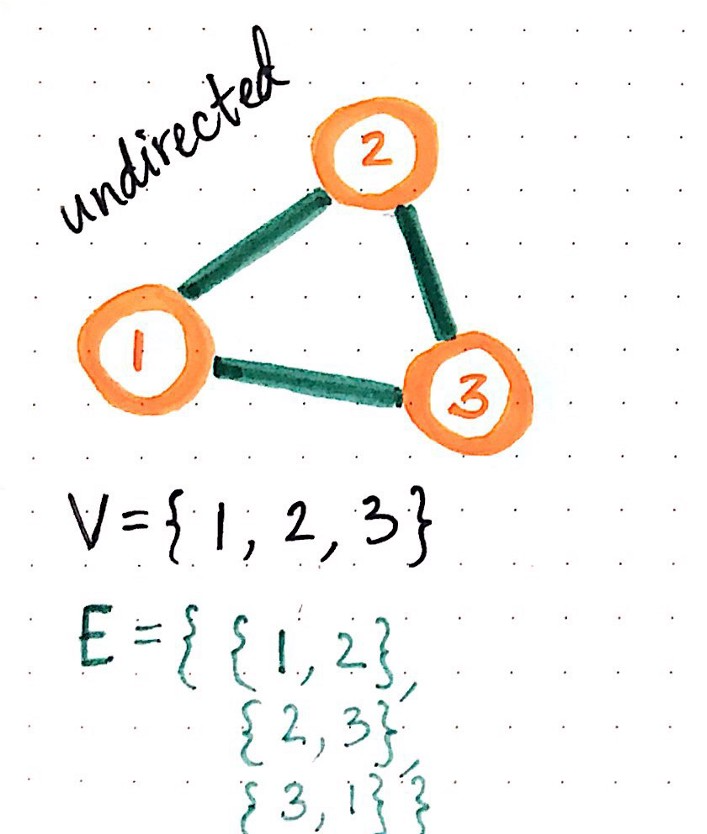 undirected
2
1
3
V={1, 2, 3}
E={{1, 2},
{2, 3},
{3, 1}}